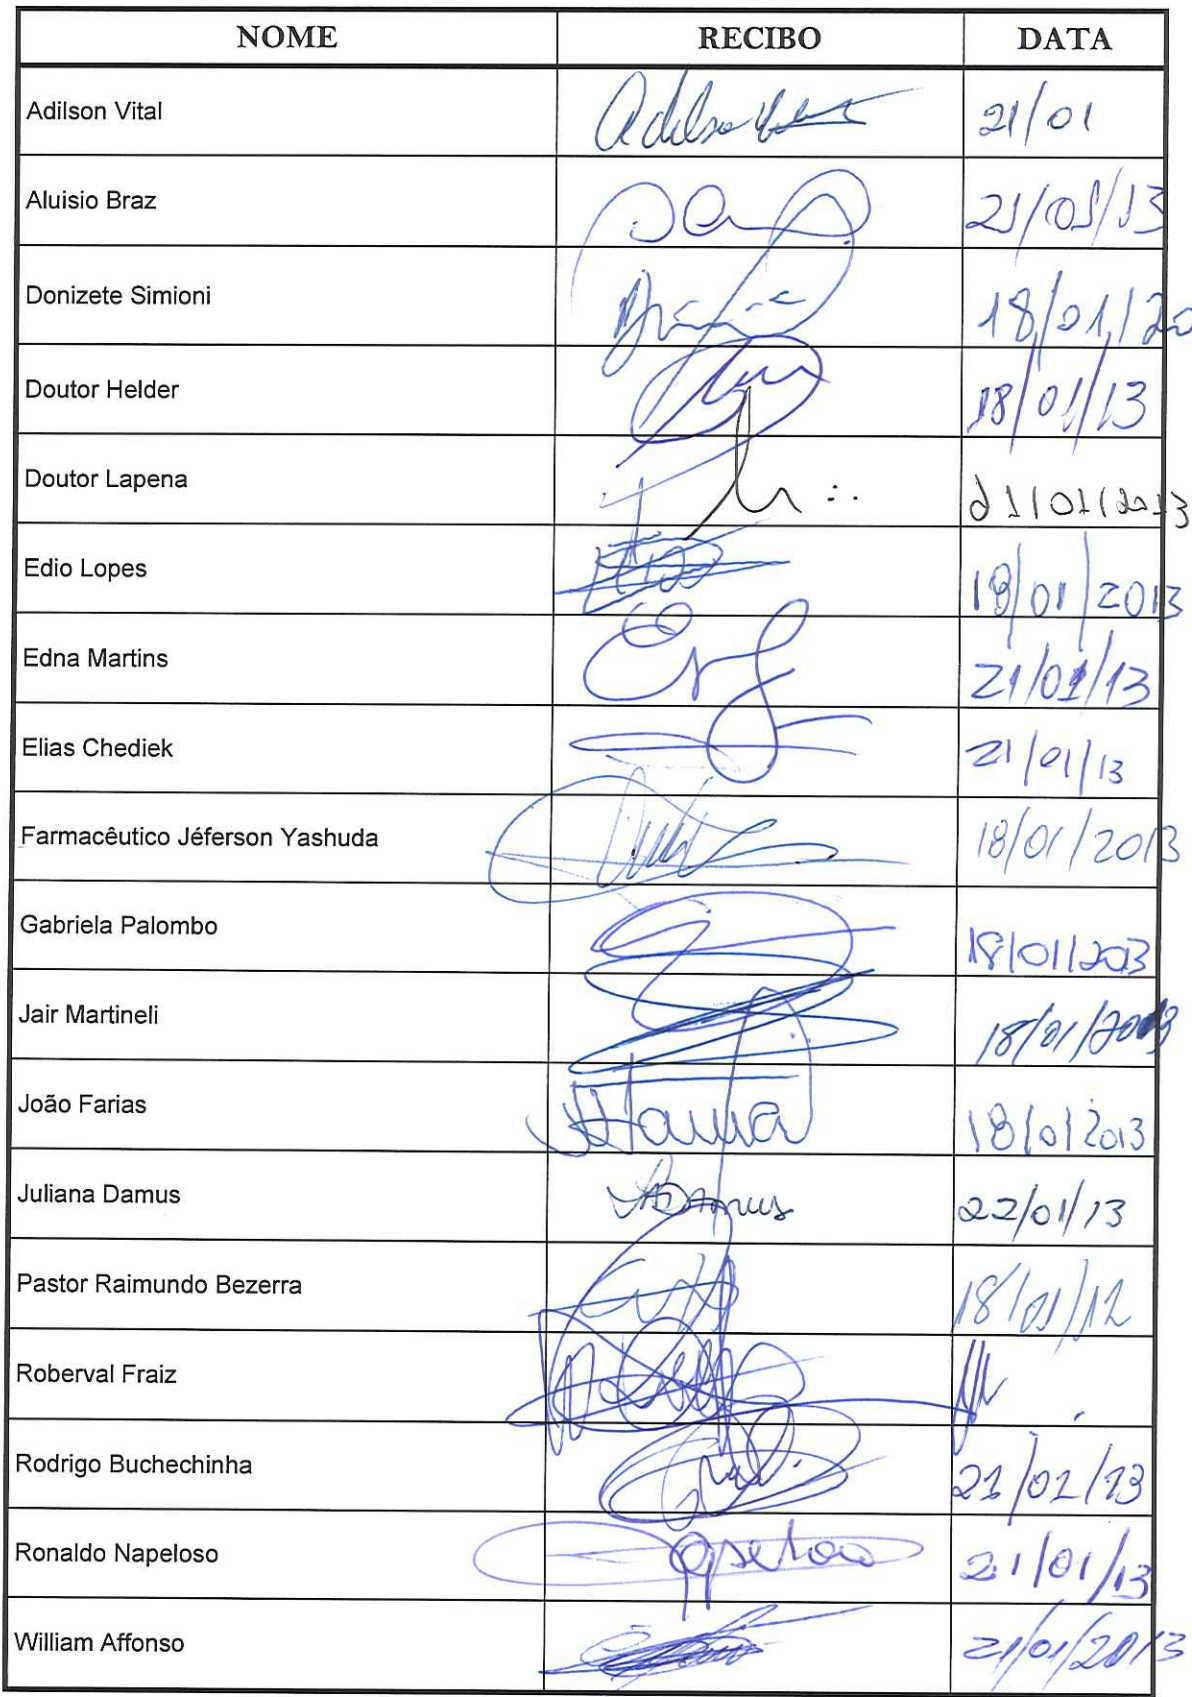 NOME RECIBO DATA
Adilson Vital Adilson Vital 21/01
Aluisio Braz 21/01/13
Donizete Simioni 18/01/20
Doutor Helder 18/01/13
Doutor Lapena 21/01/2013
Edio Lopes 18/01/2013
Edna Martins 21/01/13
Elias Chediek 21/01/13
Farmacêutico Jéferson Yashuda 18/01/2013
Gabriela Palombo 18/01/2013
Jair Martineli 18/01/2013
João Farias 18/01/2013
Juliana Damus JDamus 22/01/13
Pastor Raimundo Bezerra 18/01/12
Roberval Fraiz
Rodrigo Buchechinha 21/01/13
Ronaldo Napeloso 21/01/13
William Affonso 21/01/2013